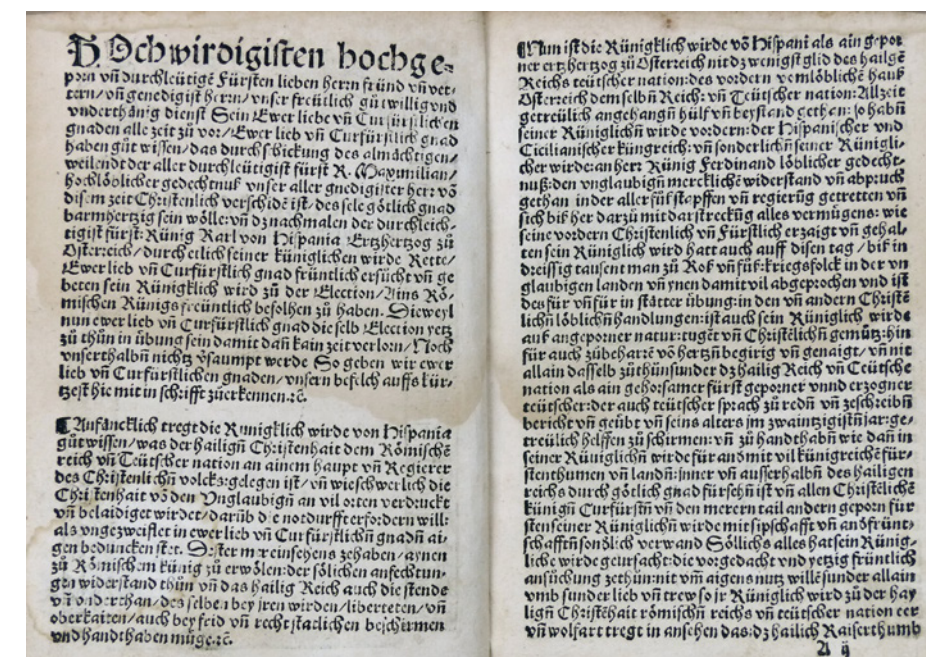 Hochwirdigisten hochge-
porn vn̄ durchleütigē Fürsten lieben herrn fründ vn̄ vet-
tern/ vn̄ genedigist herrn/ vnser freütlich gůtwillig vnd
vnderthānig dienst Sein Ewer liebe vn̄ Curfürstlichen
gnaden alle zeit zů vor/ Ewer lieb vn̄ Curfürstlich gnad
haben gůt wissen/ das durch schickung des almāchtigen/
weilendt der aller durchleütigist fürst R. Maximilian/
hochlöblicher gedechtnuß vnser aller gnedigister herr vō
disem zeit Christenlich verschidē ist/ des sele götlich gnad
barmhertzig sein wölle: vn̄ dz nachmalen der durchleich-
tigist fürst: Künig Karl von Hispania Ertzhertzog zů
Osterreich/ durch etlich seiner küniglichen wirde Rette/
Ewer lieb vn̄ Curfürstlich gnad früntlich ersücht vn̄ ge
beten sein Küniglich wird zů der Election/ Ains Rö-
mischen Künigs freüntlich befolhen zů haben. Dieweyl
nun ewer lieb vn̄ Curfürstlich gnad die selb Election yetz
zů thůn in übung sein damit dan̄ kain zeit verlorn/ Noch
vnserthalbn̄ nichtz v̄saumpt werde So geben wir ewer
lieb vn̄ Curfürstlichen gnaden/ vnsern befelch auffs kür-
tzest hie mit in schrifft zůerkennen. ꝛc.
¶ Anfāncklich tregt die Kunigklich wirde von Hispania
gůt wissen/ was der hailign̄ Christenhait dem Römischē
reich vn̄ Teütscher nation an ainem haupt vn̄ Regierer
des Christenlichn̄ volcks: gelegen ist/ vn̄ wie schwerlich die
Christenhait vō den Vnglaubign̄ an vil orten verdruckt
vn̄ belaidiget wirdet/ darūb die notdurfft erfordern will:
als vngezweiflet in ewer lieb vn̄ Curfürstlichn̄ gnadn̄ ai-
gen beduncken stet. Dester mer einsehens zehaben/ aynen
zů Römischem künig zů erwölen: der sölichen anfechtun-
gen widerstand thůn vn̄ das hailig Reich auch die stende
vn̄ onderthan/ des selben bey jren wirden/ liberteten/ vn̄
oberkaiten/ auch bey feid vn̄ recht statlichen beschirmen
vnd handthaben müge. ꝛc.
¶ Nun ist die Künigklich wirde vō Hispani als ain gepor
ner ertzhertzog zů Osterreich nit dz wenigst glid des hailgē
Reichs teütscher nation: des vordern vom löblichē hauß
Osterreich dem selbn̄ Reich: vn̄ Teütscher nation: Allzeit
getreülich angehangn̄ hülf vn̄ beystand gethan: so habn̄
seiner Küniglichn̄ wirde vordern: der Hispanischer vnd
Cicilianischer küngreich: vn̄ sonderlichn̄ seiner Künigli-
cher wirde: anherr Künig Ferdinand löblicher gedecht-
nuß: den vnglaubign̄ mercklichē widerstand vn̄ abpruch
gethan in der aller fůßstapffen vn̄ regierūg getretten vn̄
sich biß her darzů mit darstreckūg alles vermügens: wie
seine vordern Christenlich vn̄ Fürstlich erzaigt vn̄ gehal-
ten sein Küniglich wird hatt auch auff disen tag/ biß in
dreissig tausent man zů Roß vn̄ fůß: kriegsfolck in der vn
glaubigen landen vn̄ ynen damit vil abgeprochen vnd ist
des für vn̄ für in stātter übung: in den vn̄ andern Christē
lichn̄ löblichn̄ handlungen: ist auch sein Küniglich wirde
auß angeporner natur: tugēt vn̄ Christēlichn̄ gemütz: hin
für auch zůbeharrē vō hertzn̄ begirig vn̄ genaigt/ vn̄ nit
allain dasselb zůthůn sunder dz hailig Reich vn̄ Teütsche
nation als ain gehorsamer fürst geporner vnnd erzogner
teütscher: der auch teütscher sprach zů redn̄ vn̄ zeschreibn̄
bericht vn̄ geübt vn̄ seins alters jm zwaintzigistn̄ jar: ge-
treülich helffen zů schirmen: vn̄ zů handthabn̄ wie dan̄ in
seiner Küniglichn̄ wirde für anō mit vil künigreichē für-
stenthumen vn̄ landn̄: jnner vn̄ ausserhalbn̄ des hailigen
reichs durch götlich gnad fürsehn̄ ist vn̄ allen Christēlichē
künign̄ Curfürstn̄ vn̄ den merern tail andern geporn für
sten seiner Küniglichn̄ wirde mit sipschafft vn̄ anō früntschafftn̄ sonōlich verwand Söllichs alles hat sein Künig-
liche wirde geursacht: die vorgedacht vnd yetzig früntlich
ansůchung zethůn: nit vm̄ aigens nutz wille sunder allain
vmb sunder lieb vn̄ trew so jr Küniglich wird zů der hay
lign̄ Christēhait römischn̄ reichs vn̄ teütscher nation eer
vn̄ wolfart tregt in ansehen das: dz hailich Kaiserthumb
A ij